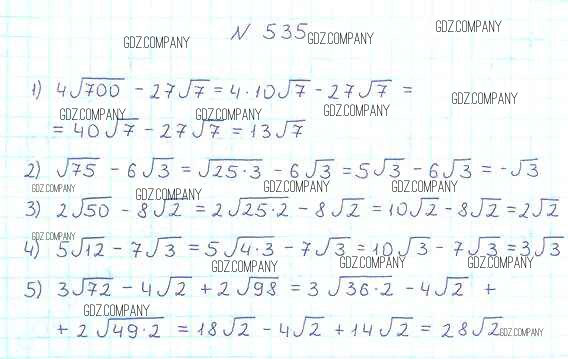 N 535
GDZ.COMPANY GDZ.COMPANY GDZ.COMPANY
1) 4√700 - 27√7 = 4·10√7 - 27√7 =
GDZ.COMPANY GDZ.COMPANY GDZ.COMPANY GDZ.COMPANY
= 40√7 - 27√7 = 13√7
2) √75 - 6√3 = √25·3 - 6√3 = 5√3 - 6√3 = -√3
GDZ.COMPANY GDZ.COMPANY GDZ.COMPANY GDZ.COMPANY
3) 2√50 - 8√2 = 2√25·2 - 8√2 = 10√2 - 8√2 = 2√2
GDZ.COMPANY
4) 5√12 - 7√3 = 5√4·3 - 7√3 = 10√3 - 7√3 = 3√3
GDZ.COMPANY GDZ.COMPANY GDZ.COMPANY
5) 3√72 - 4√2 + 2√98 = 3√36·2 - 4√2 +
GDZ.COMPANY
+ 2√49·2 = 18√2 - 4√2 + 14√2 = 28√2
GDZ.COMPANY